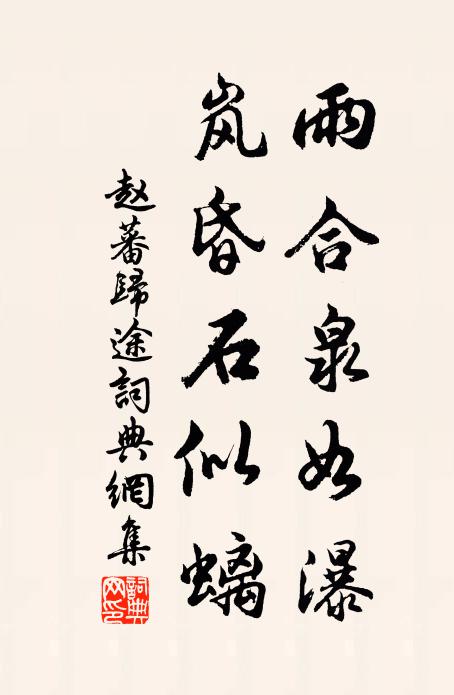 雨合泉如瀑
岚昏石似螭
赵蕃歸途詞典網集
詞典网印